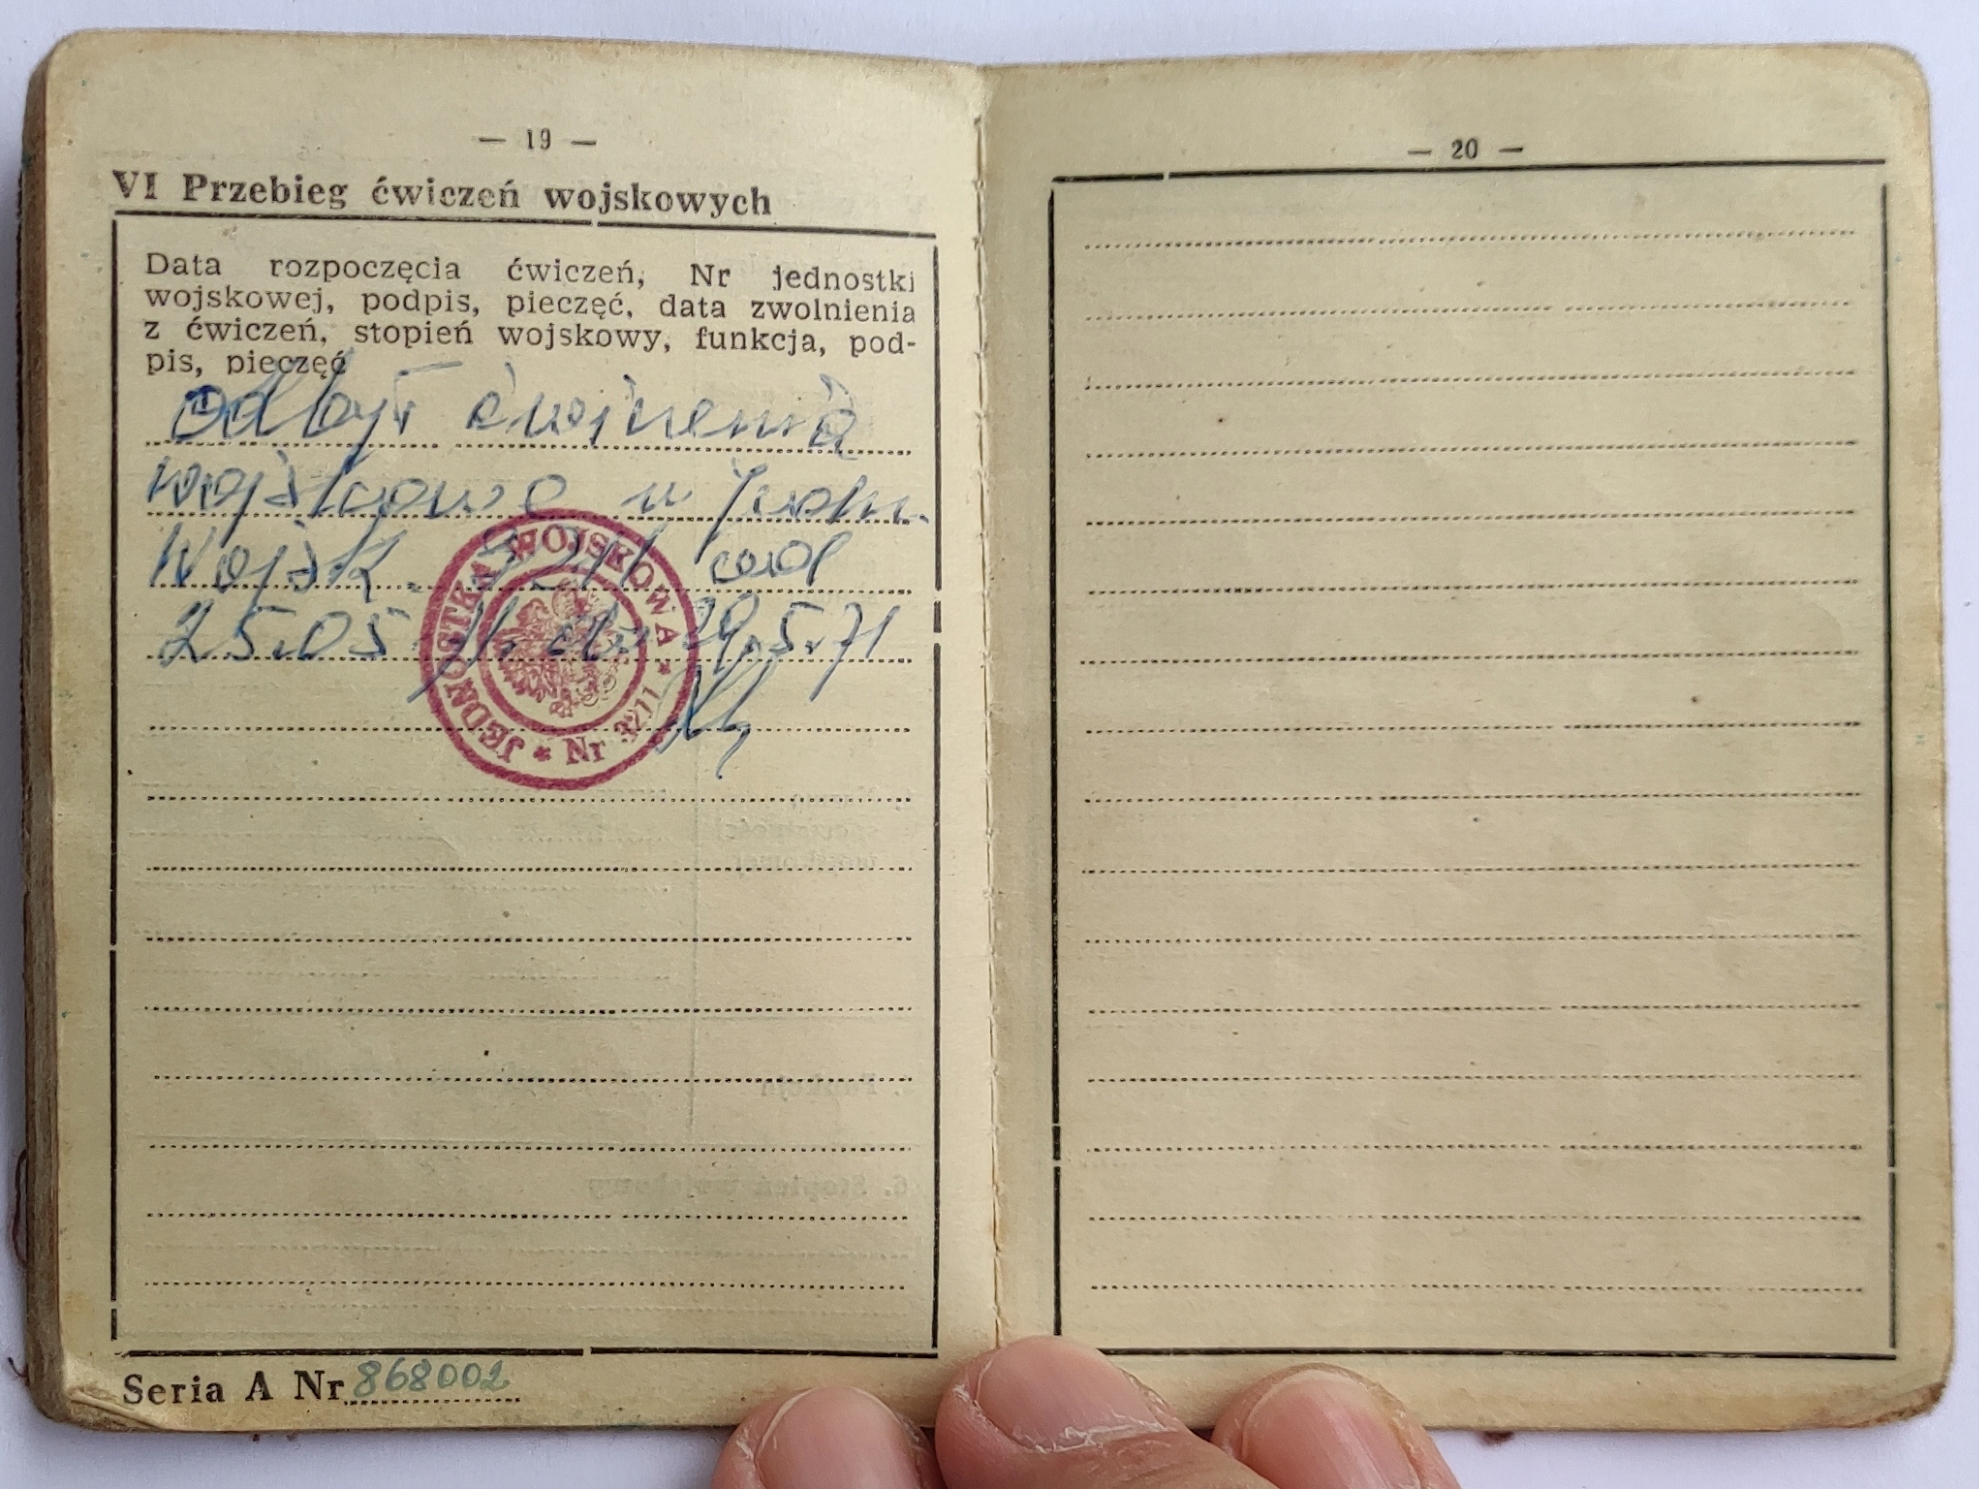 — 19 —
VI Przebieg ćwiczeń wojskowych
Data rozpoczęcia ćwiczeń, Nr jednostki
wojskowej, podpis, pieczęć, data zwolnienia
z ćwiczeń, stopień wojskowy, funkcja, pod-
pis, pieczęć
Odbył ćwiczenia
wojskowe w Jedn.
Wojsk. 3211 od
25.05.71. do 29.5.71
JEDNOSTKA WOJSKOWA * Nr 3211 *
Seria A Nr 868002
— 20 —